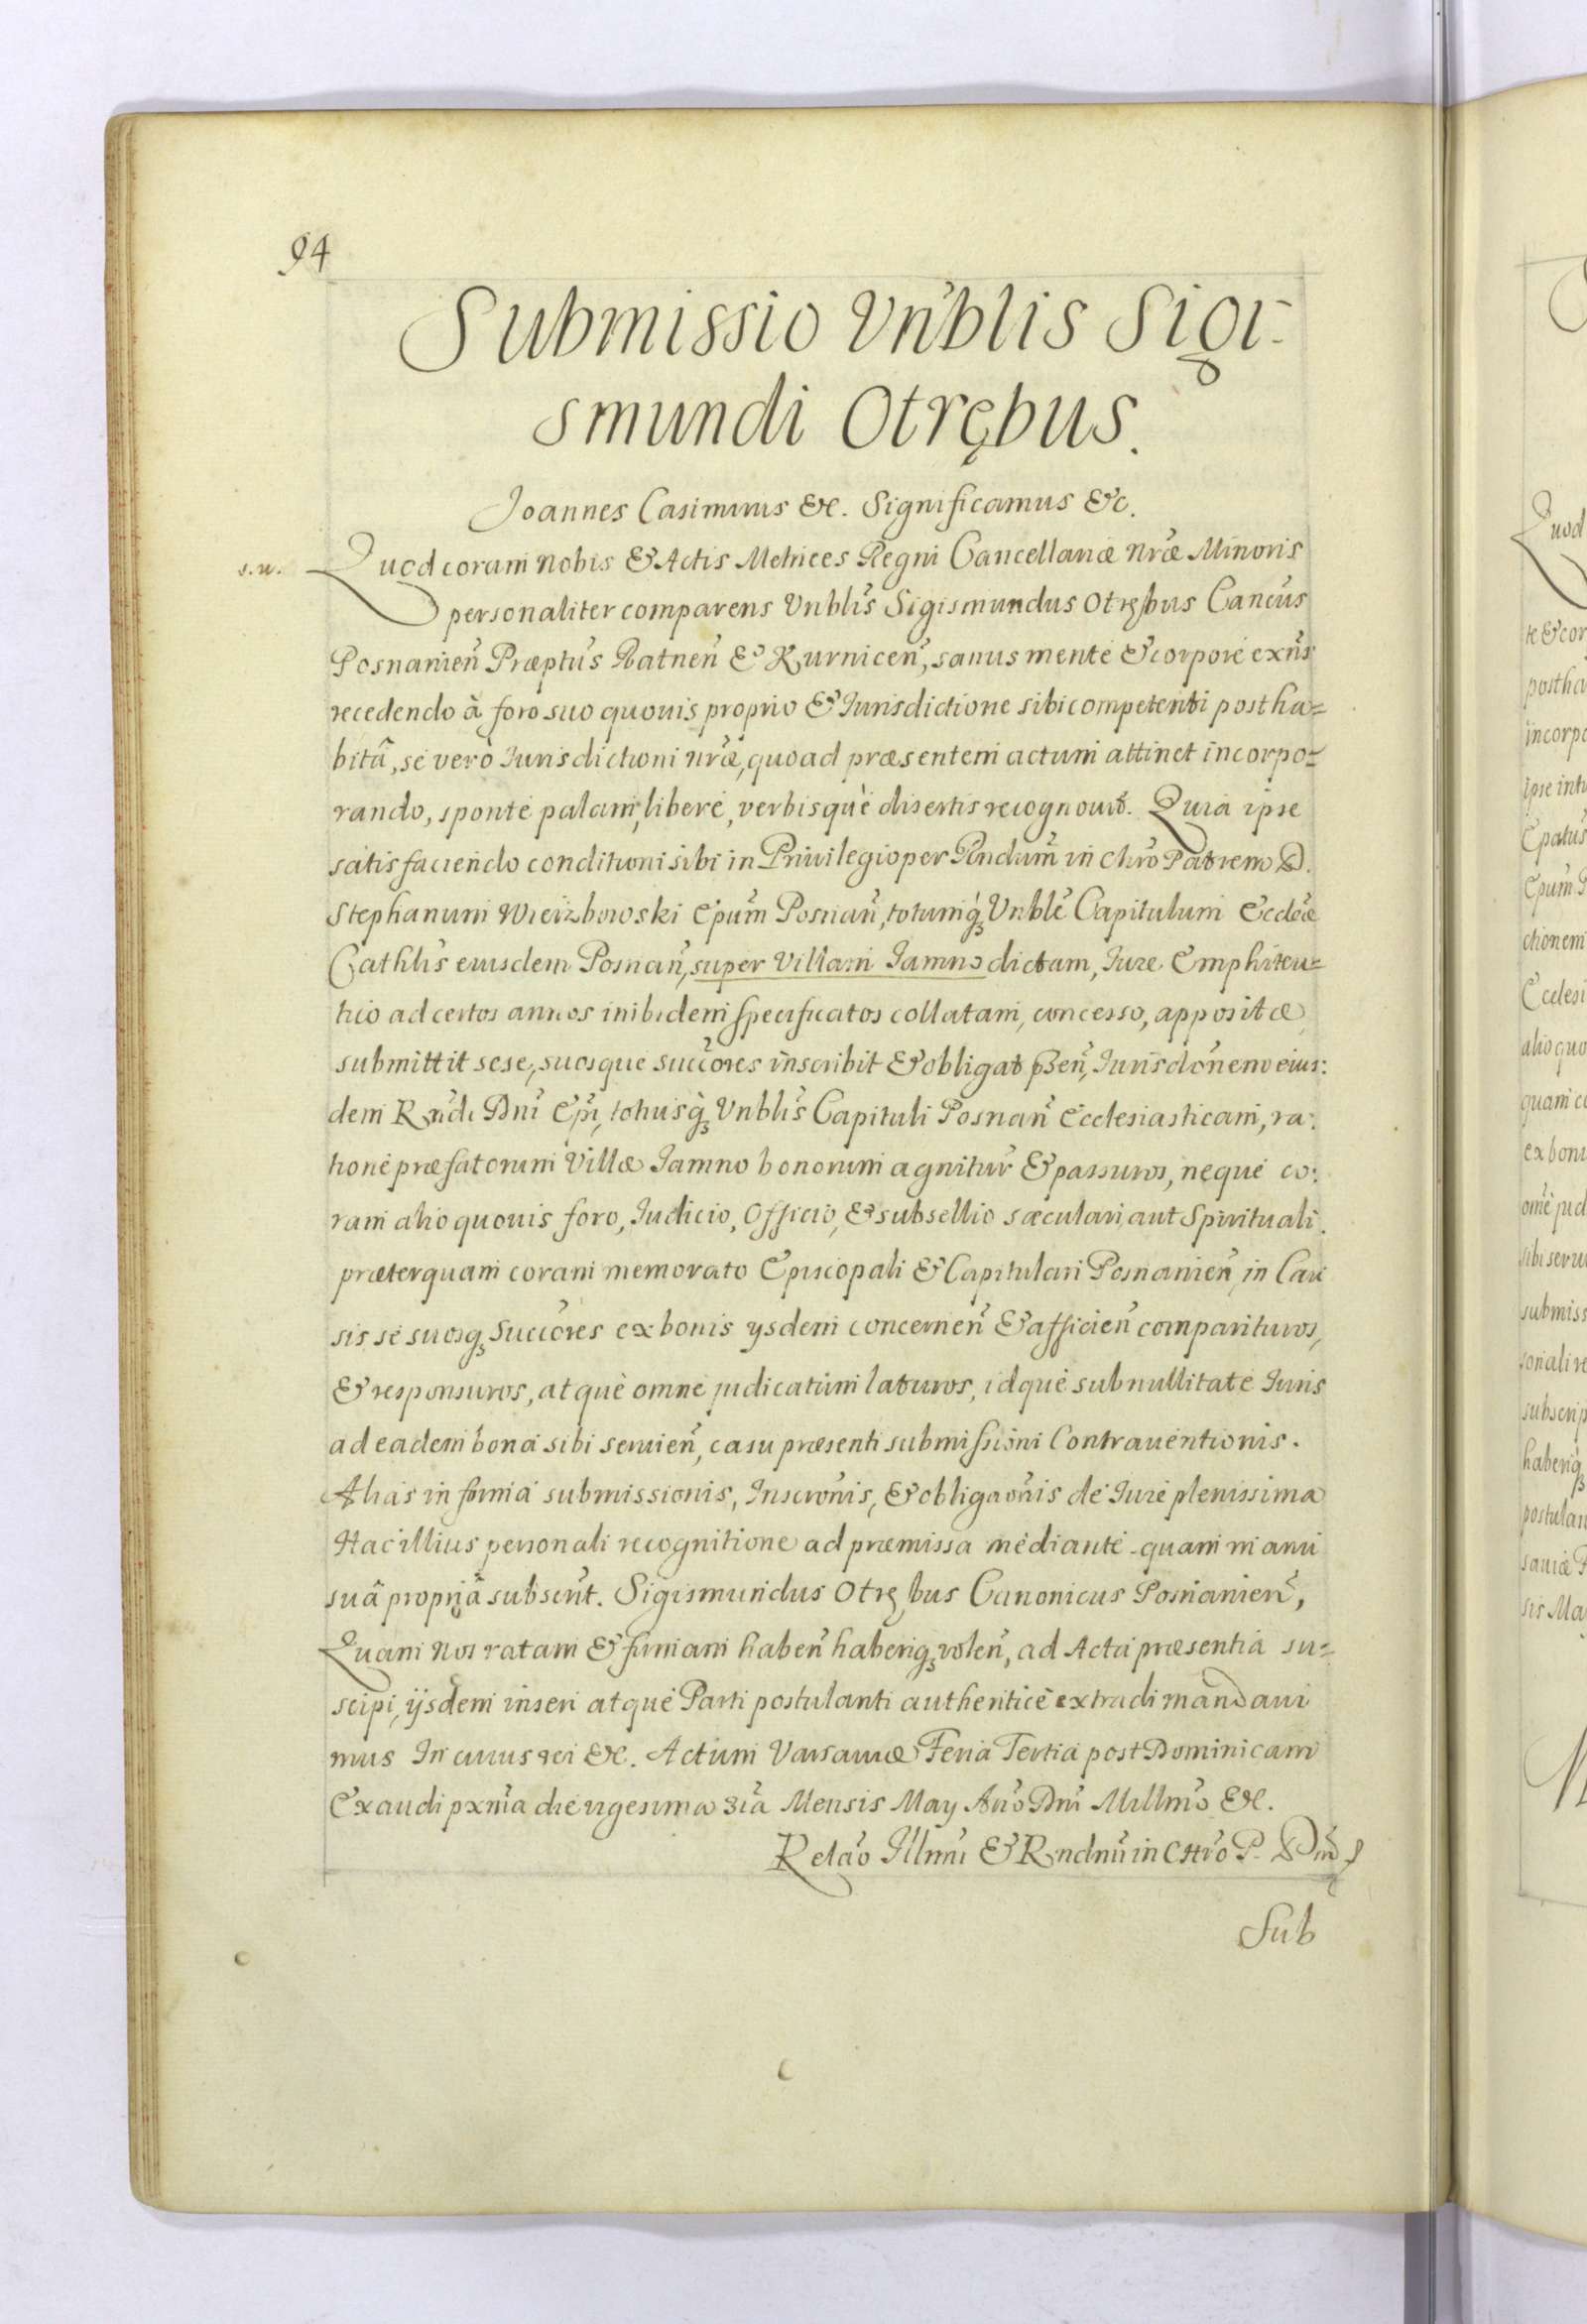 94
Submissio Vn̄blis Sigi-
smundi Otrębus.
Joannes Casimirus &c. Significamus &c.
s.w. Quod coram nobis & Actis Metrices Regni Cancellariæ nr̄æ Minoris
personaliter comparens Vnblīs Sigismundus Otrębus Cancūs
Posnanien̄ Præptūs Ratnen̄ & Kurnicen̄, sanus mente & corpore exn̄s
recedendo à foro suo quouis proprio & Iurisdictione sibi competenti postha=
bitâ, se verò Iurisdictioni nr̄æ, quoad præsentem actum attinet incorpo=
rando, sponte palam, libere, verbisquè disertis recognouit. Quia ipse
satisfaciendo conditioni sibi in Priuilegio per Rndum̄ in Chr̄o Patrem D.
Stephanum Wierzbowski Epum̄ Posnan̄, totumq̀ꝫ Vnble̅ Capitulum Eccle̅æ
Cathlis̄ eiusdem Posnan̄, super Villam Jamno dictam, Jure Emphiteu=
tico ad certos annos inibidem specificatos collatam, concesso, appositæ
submittit sese, suosque succo̅res inscribit & obligat p̄sen̄, Jurisdcōnem eius:
dem Rn̄di Dnī Epī, totiusq̀ꝫ Vnblis̄ Capituli Posnan̄ Ecclesiasticam, ra:
tione præfatorum Villæ Jamno bonorum agnitur̄ & passuros, neque co:
ram alio quouis foro, Judicio, Officio, & subsellio sæculari aut Spirituali.
præterquam coram memorato Episcopali & Capitulari Posnanien̄ in Cau
sis se suosqꝫ succo̅res ex bonis ysdem concernen̄ & afficien̄ comparituros,
& responsuros, atquè omne judicatum laturos, idque sub nullitate Iuris
ad eadem bona sibi seruien̄, casu præsenti submissioni Contrauentionis.
Alias in forma submissionis, Inscron̄is, & obligaon̄is de Iure plenissima
Hac illius personali recognitione ad præmissa mediante quam manu
suâ propriâ subscrit̄. Sigismundus Otrębus Canonicus Posnanien̄,
Quam nos ratam & firmam haben̄ haberiqꝫ volen̄, ad Acta præsentia su=
scipi, ijsdem inseri atque Parti postulanti authenticè extradi mandaui
mus In cuius rei &c. Actum Varsauiæ Feria Tertia post Dominicam
Exaudi pxm̄a die vigesima 3ia̅ Mensis May Ano̅ Dnī Millmo̅ &c.
Relaō Illmī & Rndmī in Chr̄o P. Dnī
Sub